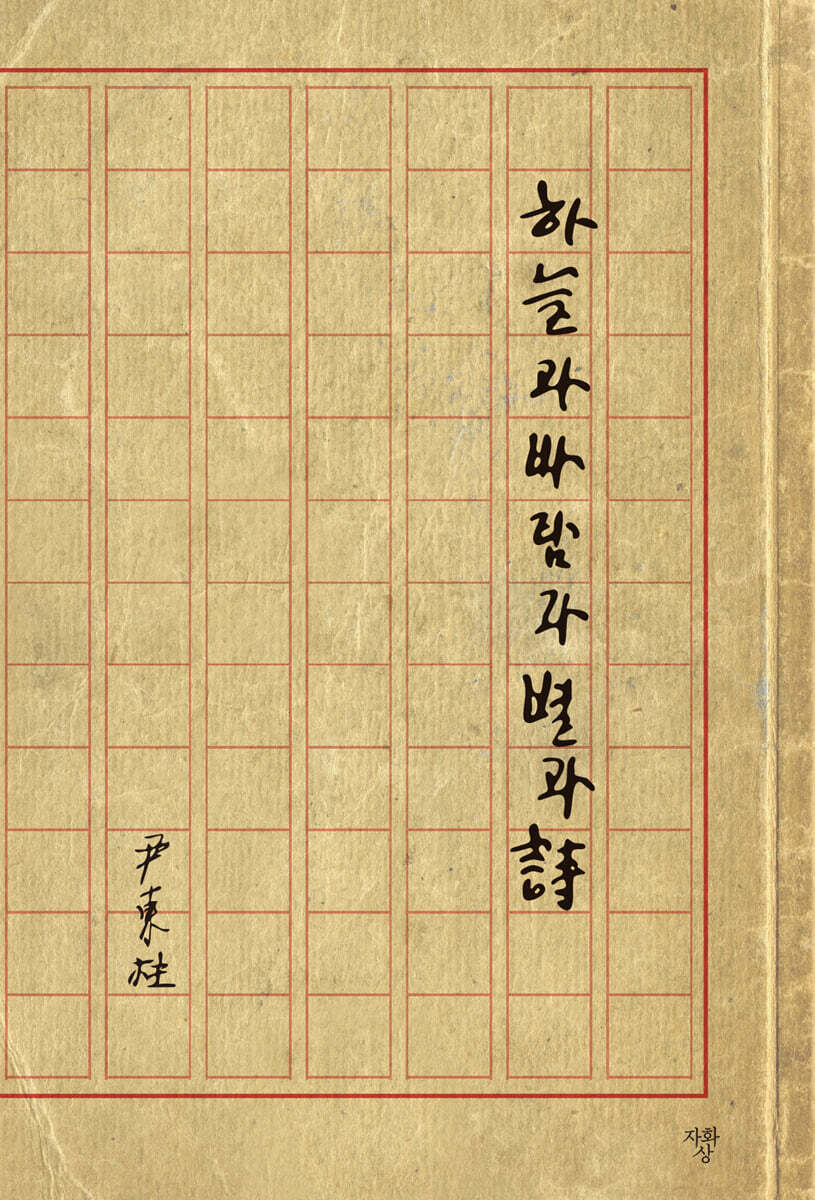 하늘과바람과별과詩
尹東柱
자화
상